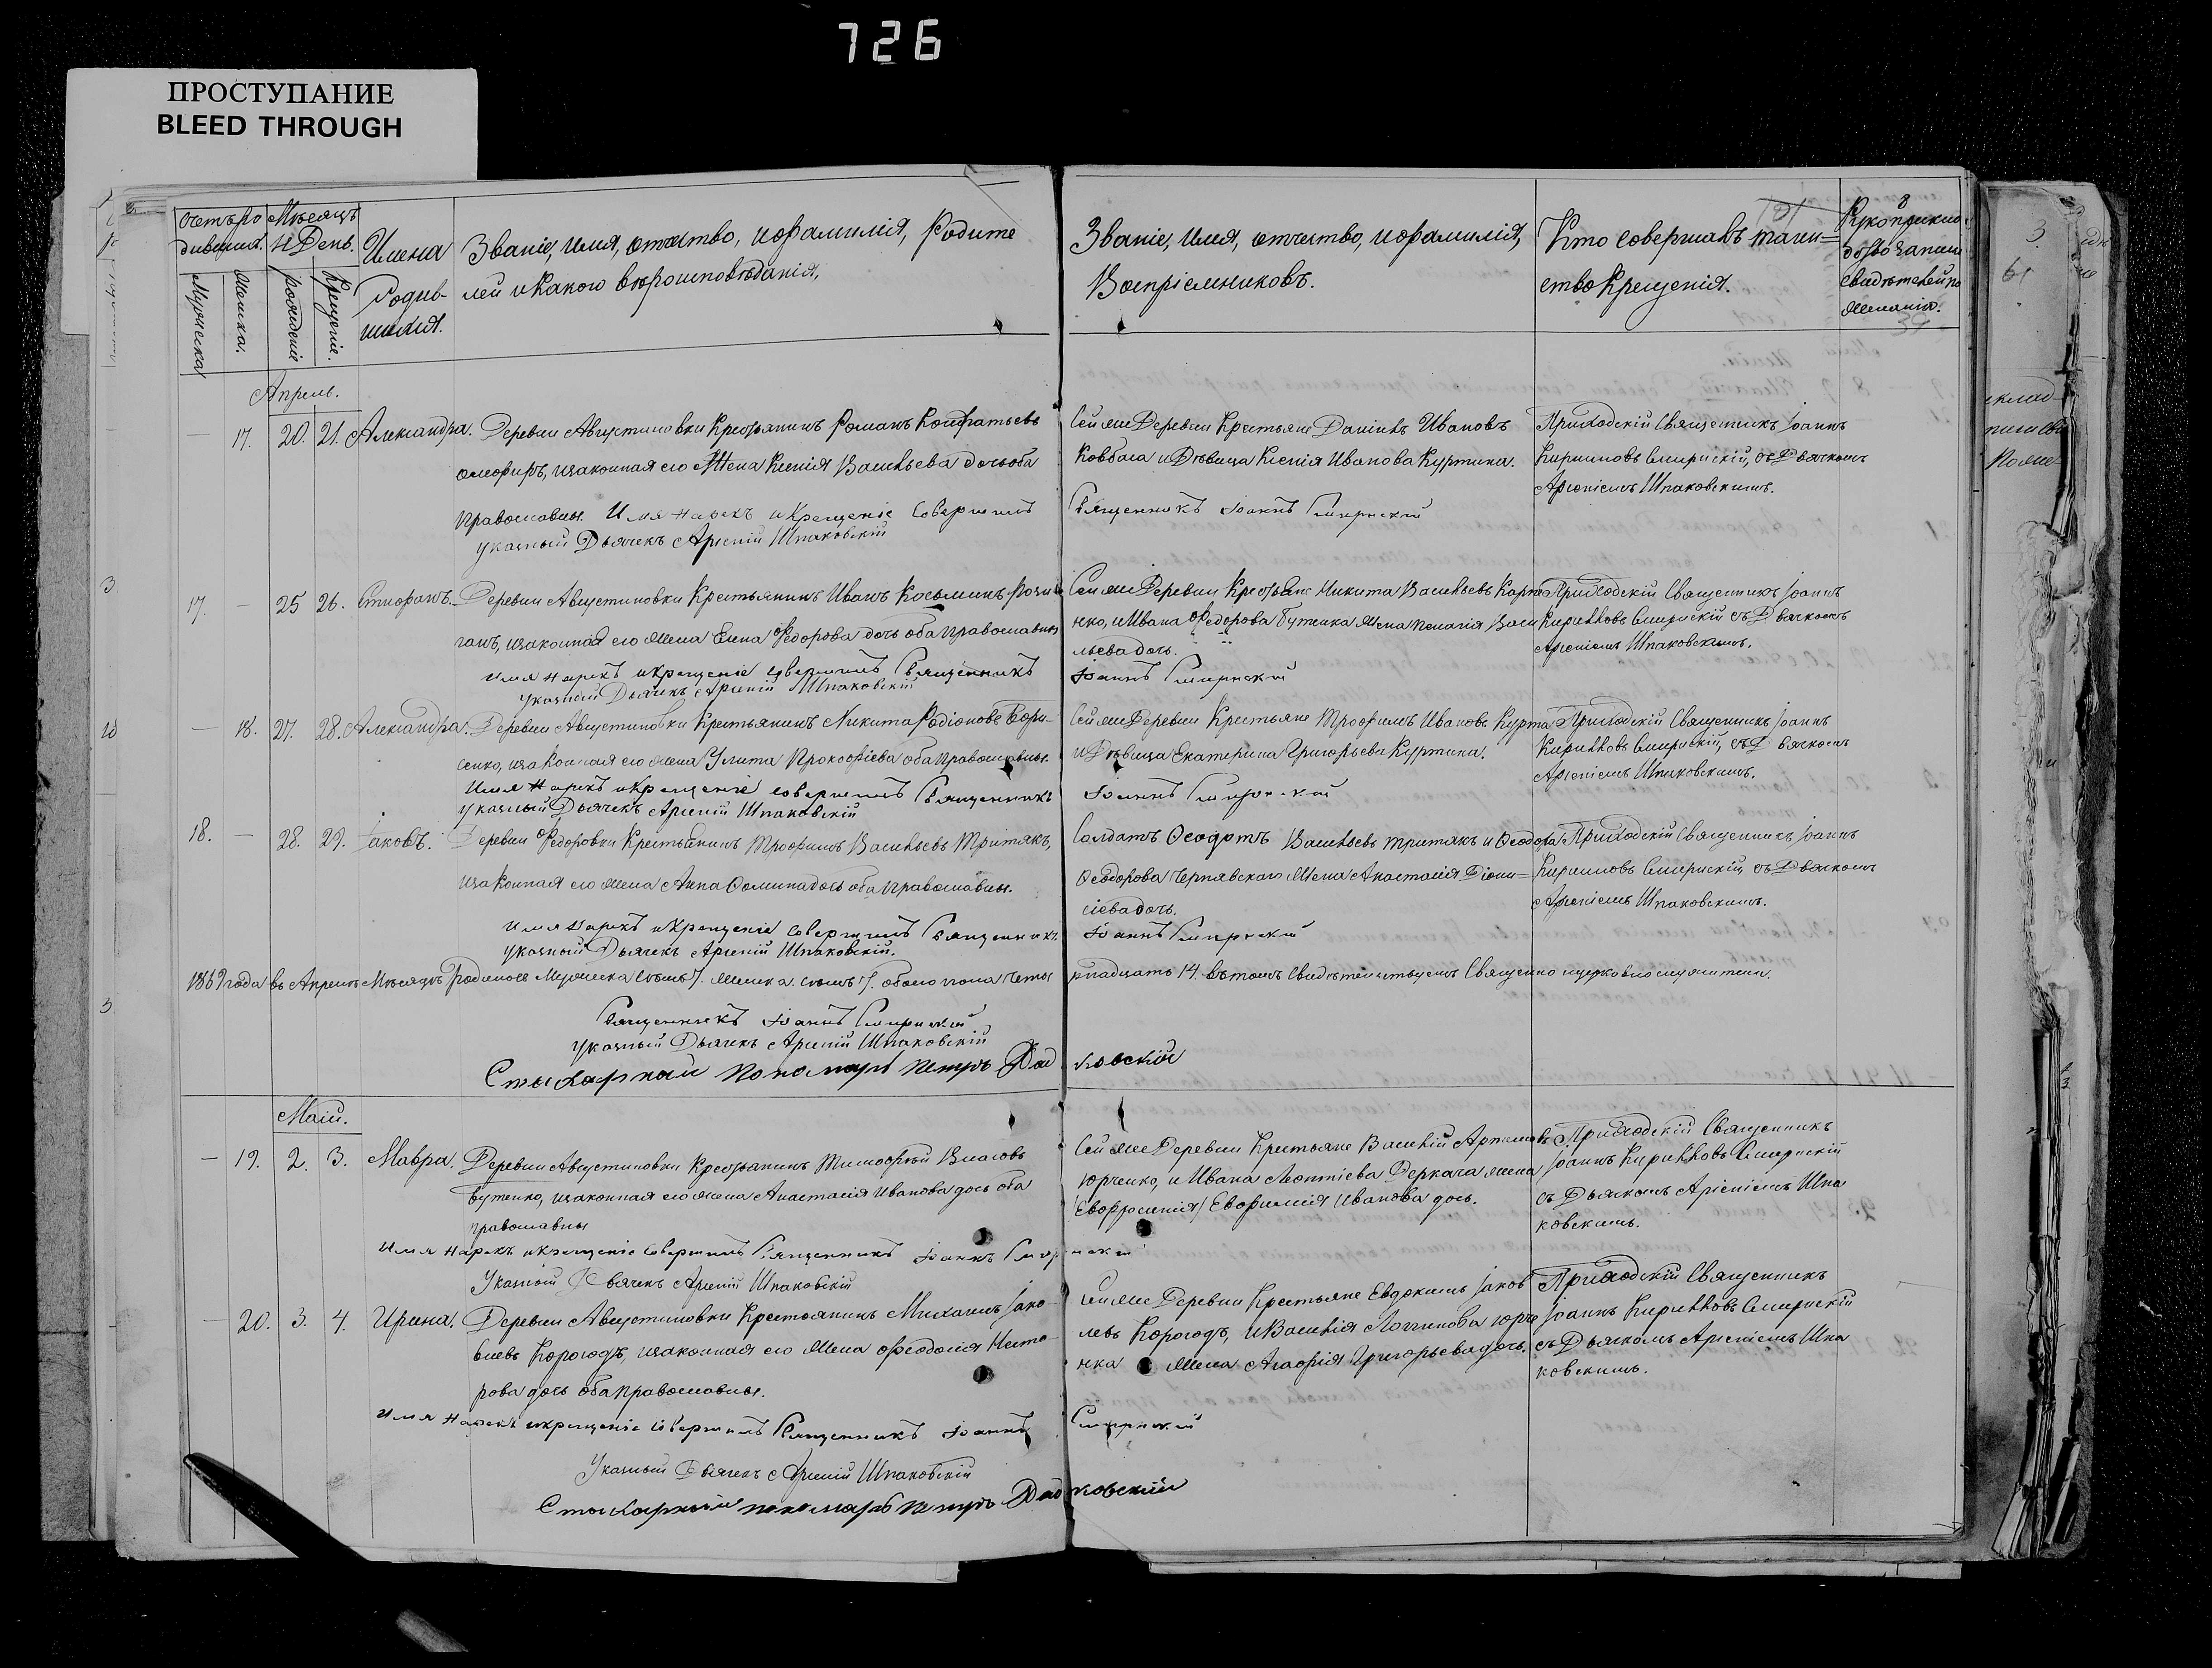 726
ПРОСТУПАНИЕ
BLEED THROUGH
Счетъ ро
дившихся.
Мѣсяцъ
и День.
Мужеска
Женска.
рожденіе
Крещеніе.
Имена
Родив-
шихся.
Званіе, имя, отчество, и фамилія, Родите
лей и какого вѣроисповѣданія,
Званіе, имя, отчество, и фамилія,
Воспріемниковъ.
Кто совершалъ таин=
ство Крещенія.
Рукоприклад
ство записи
свидѣтелей по
желанію.
Апрель.
— 17. 20. 21. Александра. Деревни Августиновки Крестьянинъ Романъ Кондратьевъ
законная его Жена Ксенія Васильева дочь оба
православны. Имя нарекъ и Крещеніе совершилъ
Священникъ Іоаннъ Смирнскій
указный Дьячекъ Арсеній Шпаковскій
Сей же Деревни Крестьяне Даніилъ Ивановъ
Ковбаса и Дѣвица Ксенія Иванова Куртина.
Приходскій Священникъ Іоаннъ
Кирилловъ Смирнскій, съ Дьячкомъ
Арсеніемъ Шпаковскимъ.
17. — 25 26. Стефанъ. Деревни Августиновки Крестьянинъ Иванъ Косьминъ
ганъ, и законная его жена Елена Федорова дочь оба православны
имя нарекъ и крещеніе совершилъ Священникъ
Іоаннъ Смирнскій
Указный Дьячекъ Арсеній Шпаковскій
Сей же Деревни Крестьяне Никита Васильевъ Карпе
нко, и Ивана Федорова Бутенка жена Пелагія Васи
льева дочь.
Приходскій Священникъ Іоаннъ
Кирилловъ Смирнскій съ Дьячкомъ
Арсеніемъ Шпаковскимъ.
— 18. 27. 28. Александра. Деревни Августиновки Крестьянинъ Никита Родіоновъ Бори-
сенко, и законная его жена Улита Прокофіева оба православны.
Имя Нарекъ и крещеніе совершилъ Священникъ
Іоаннъ Смирнскій
Указный Дьячекъ Арсеній Шпаковскій
Сей же Деревни Крестьяне Трофимъ Ивановъ Курта
и Дѣвица Екатерина Григорьева Куртина.
Приходскій Священникъ Іоаннъ
Кирилловъ Смирнскій, съ Дьячкомъ
Арсеніемъ Шпаковскимъ.
18. — 28. 29. Іаковъ. Деревни Федоровки Крестьянинъ Трофимъ Васильевъ Тритякъ,
и законная его жена Анна Фомина дочь оба православны.
имя Нарекъ и Крещеніе совершилъ Священникъ
Іоаннъ Смирнскій
указный Дьячекъ Арсеній Шпаковскій.
Солдатъ Феодотъ Васильевъ Тритякъ и Феодора
Феодорова Чернявскаго Жена Анастасія Діони=
сіева дочь.
Приходскій Священникъ Іоаннъ
Кирилловъ Смирнскій, съ Дьячкомъ
Арсеніемъ Шпаковскимъ.
1869 года въ Апрелѣ Мѣсяцѣ Родилось Мужеска семь 7. Женска семь 7. обоего пола четы
рнадцать 14. въ томъ Свидѣтельствуемъ Священно и церковно служители.
Священникъ Іоаннъ Смирнскій
Указный Дьячекъ Арсеній Шпаковскій
Стыхарный Пономарь Петръ Дадковскій
Маій.
— 19. 2. 3. Мавра. Деревни Августиновки Крестьянинъ Тимофей Власовъ
Бутенко, и законная его жена Анастасія Иванова дочь оба
православны
Имя Нарекъ и Крещеніе совершилъ Священникъ Іоаннъ Смирнскій
Указный Дьячекъ Арсеній Шпаковскій
Сей же Деревни Крестьяне Василій Артемовъ
Юрченко, и Ивана Леонтіева Деркача жена
(Евфросинія) Евфимія Иванова дочь.
Приходскій Священникъ
Іоаннъ Кирилловъ Смирнскій
съ Дьячкомъ Арсеніемъ Шпа
ковскимъ.
— 20. 3. 4. Ирина. Деревни Августиновки Крестьянинъ Михаилъ Іако-
влевъ Корогодъ, и законная его Жена Феодосія Несто-
рова дочь оба православны.
Имя Нарекъ и крещеніе совершилъ Священникъ Іоаннъ
Смирнскій
Указный Дьячекъ Арсеній Шпаковскій
Стыхарный пономарь Петръ Дадковскій
Сей же Деревни Крестьяне Евдокимъ Іаков
левъ Корогодъ, и Василія Логгинова Юрче
нка Жена Агафія Григорьева дочь.
Приходскій Священникъ
Іоаннъ Кирилловъ Смирнскій
съ Дьячкомъ Арсеніемъ Шпа
ковскимъ.